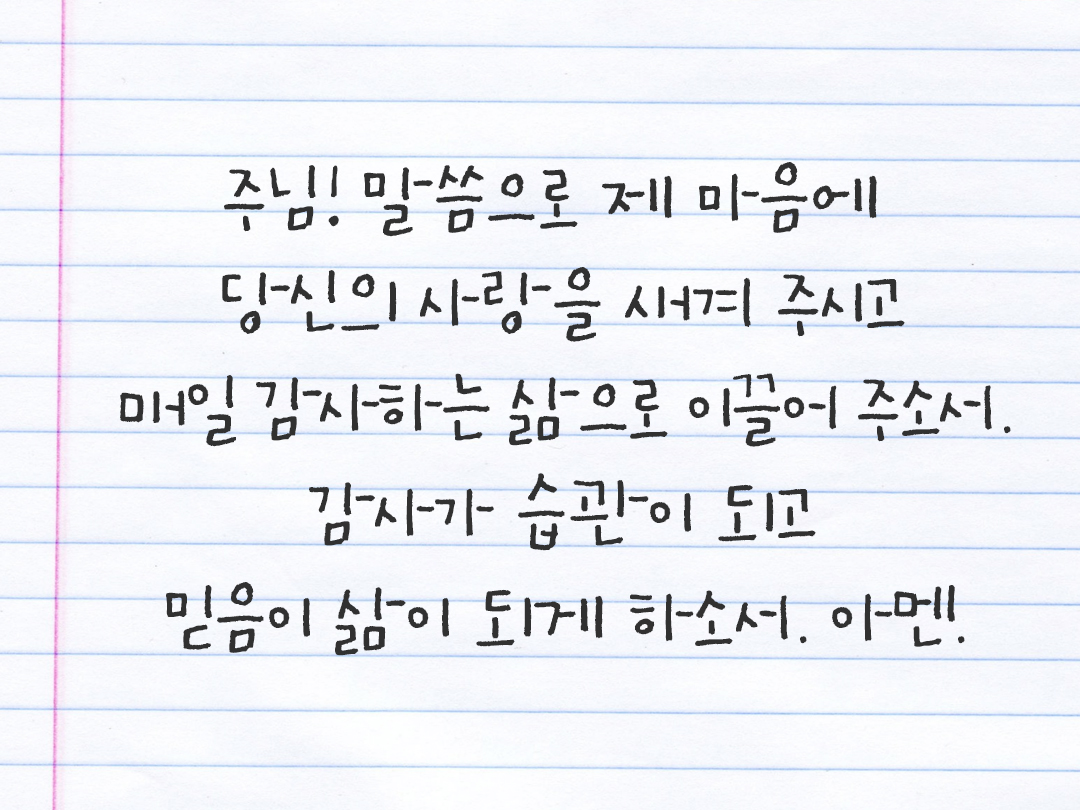 주님! 말씀으로 제 마음에
당신의 사랑을 새겨 주시고
매일 감사하는 삶으로 이끌어 주소서.
감사가 습관이 되고
믿음이 삶이 되게 하소서. 아멘.